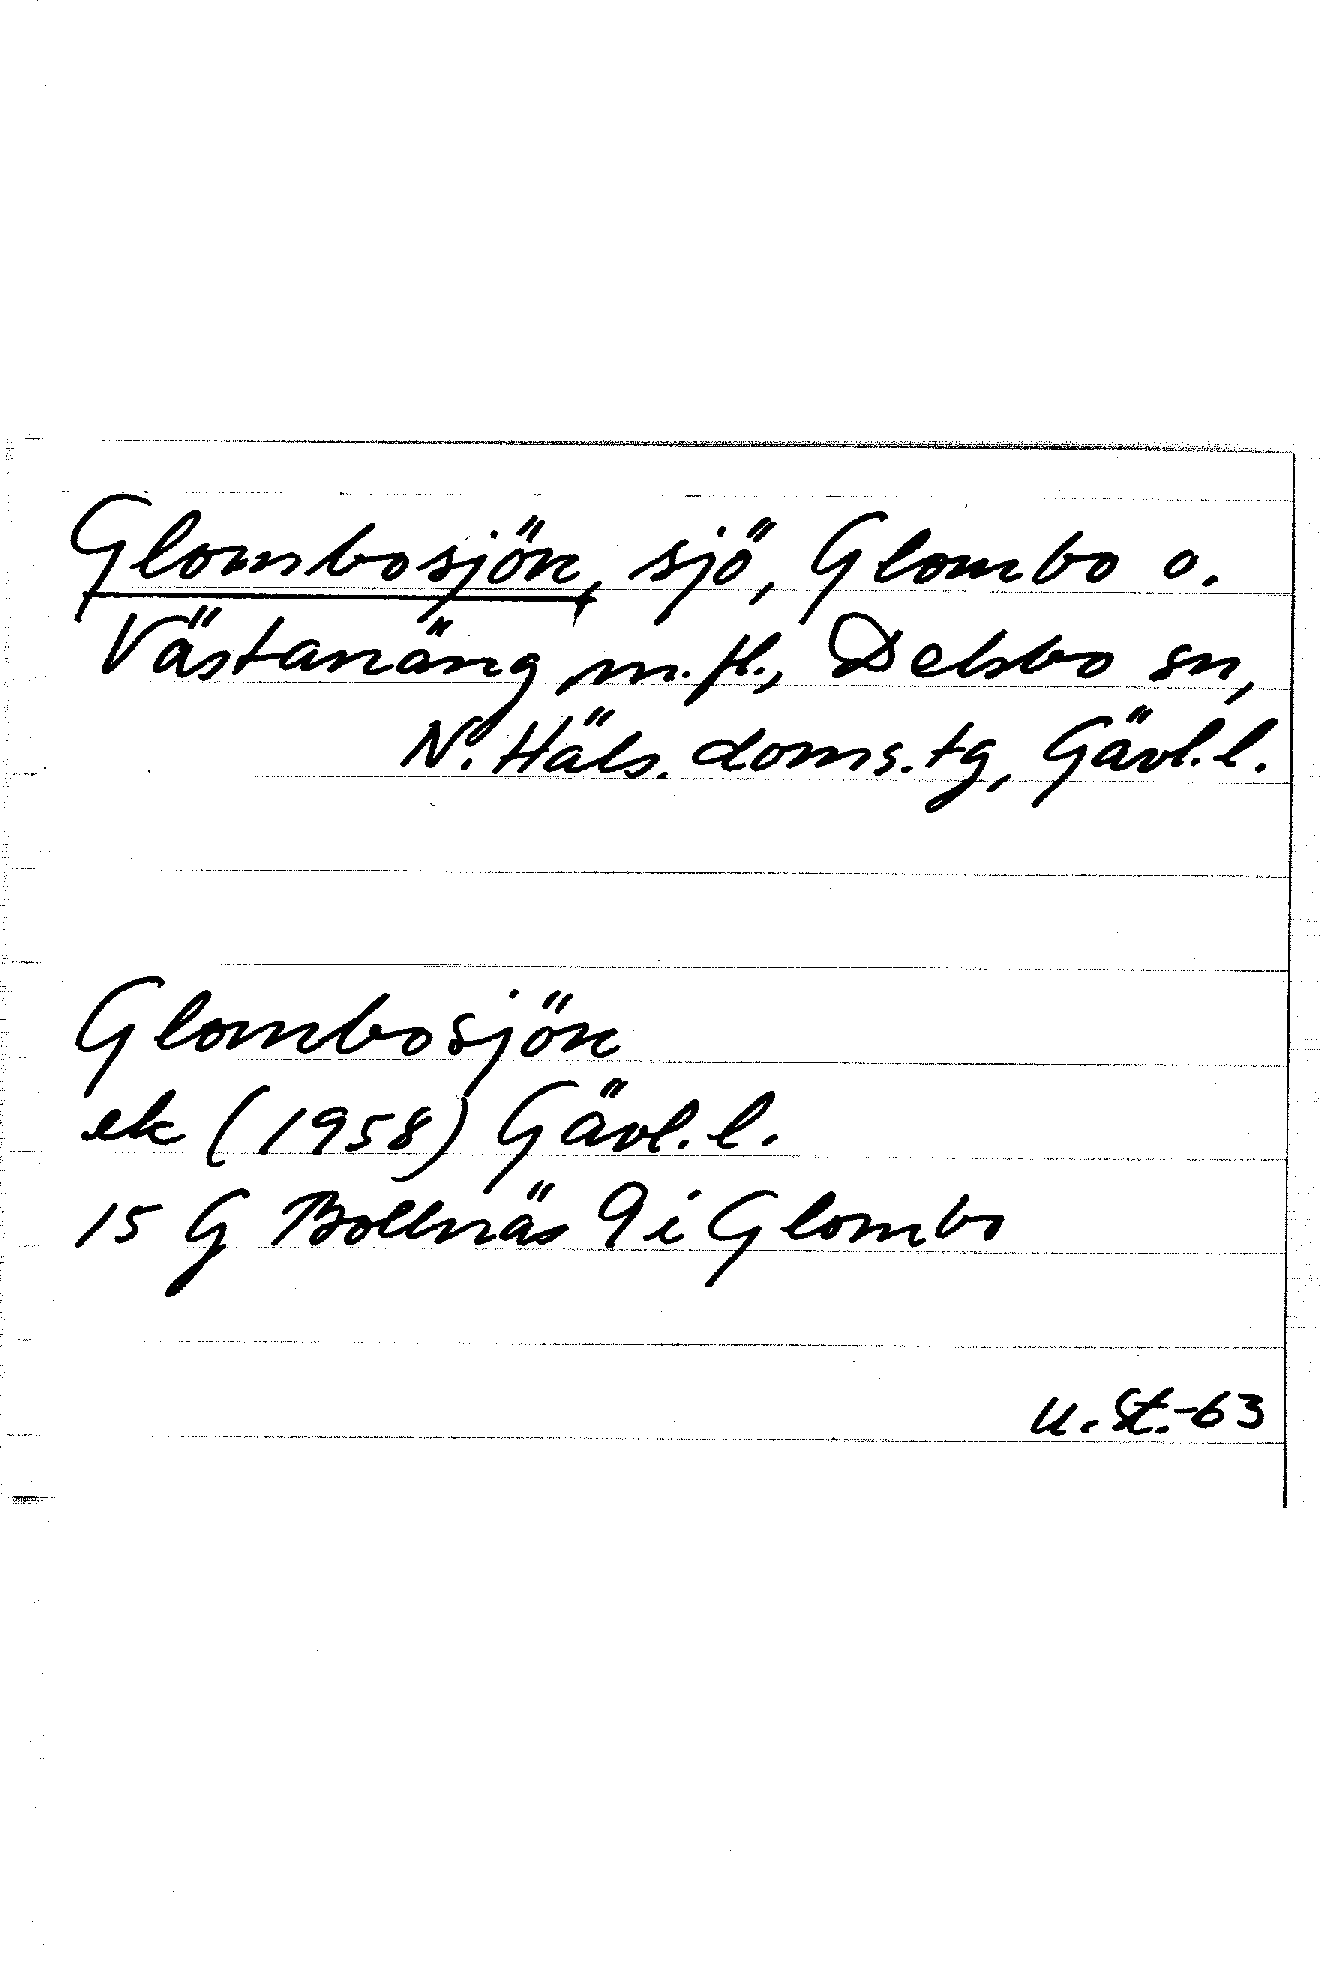 Glombosjön, sjö, Glombo o.
Västanäng m.fl., Delsbo sn,
N. Häls. doms. tg, Gävl.l.
Glombosjön
ek (1958) Gävl.l.
15 G Bollnäs 9 i Glombo
U.St.-63